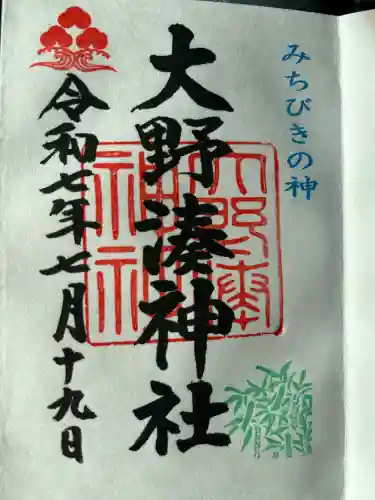 みちびきの神
大野湊神社
令和七年七月十九日